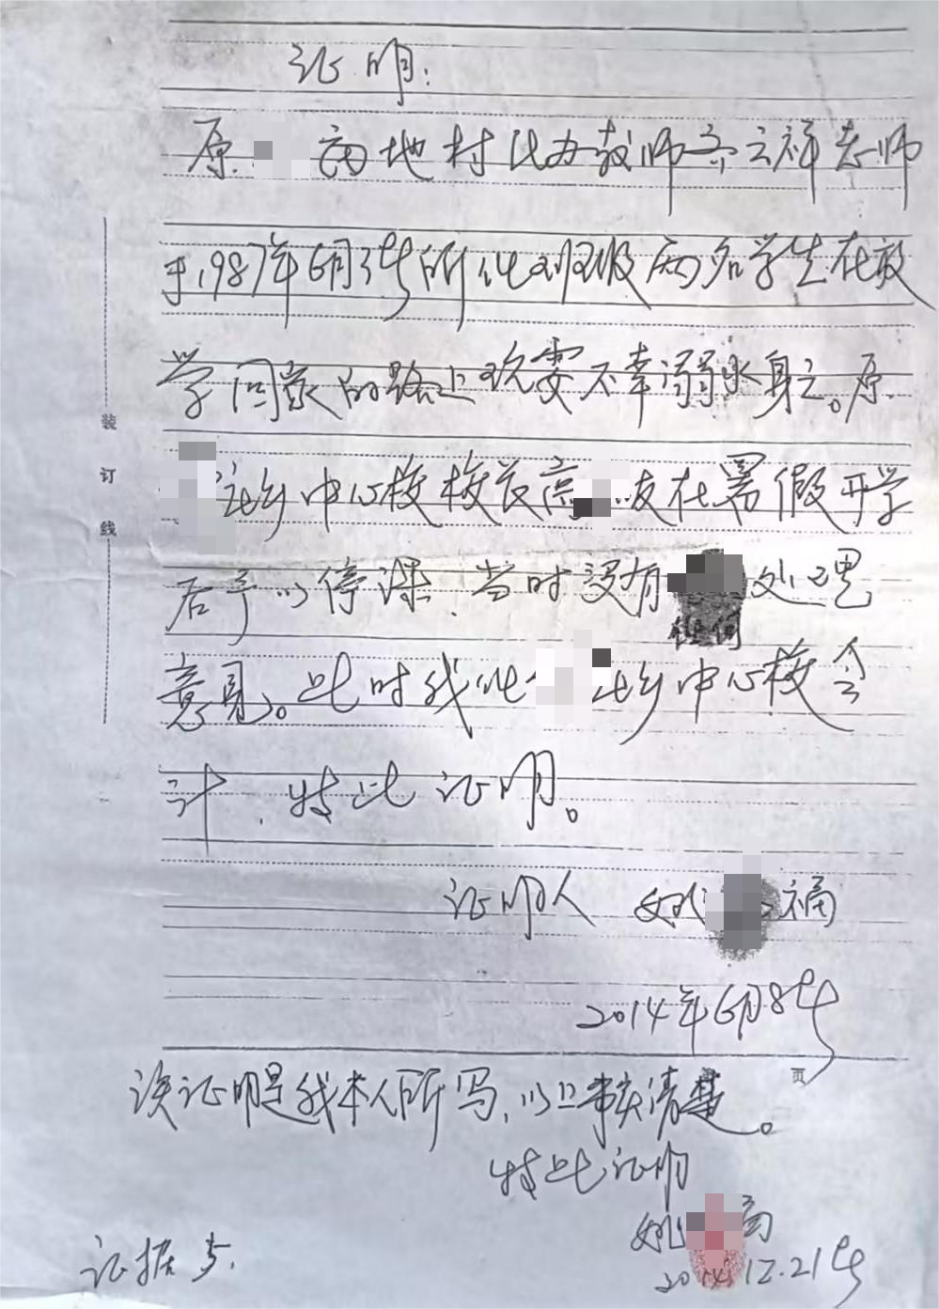 证明:
原 地村民办教师齐云祥老师
于1987年6月3号所代班级两名学生在放
学回家的路上玩耍不幸溺水身亡。原
乡中心校校长高 友在署假开学
后予以停课、当时没有 处理
任何
意见。此时我代 乡中心校会
计、特此证明。
证明人 姚 福
2014年6月8号
页
该证明是我本人所写、以上事实清楚。
特此证明
姚
12.21号
证据
装
订
线